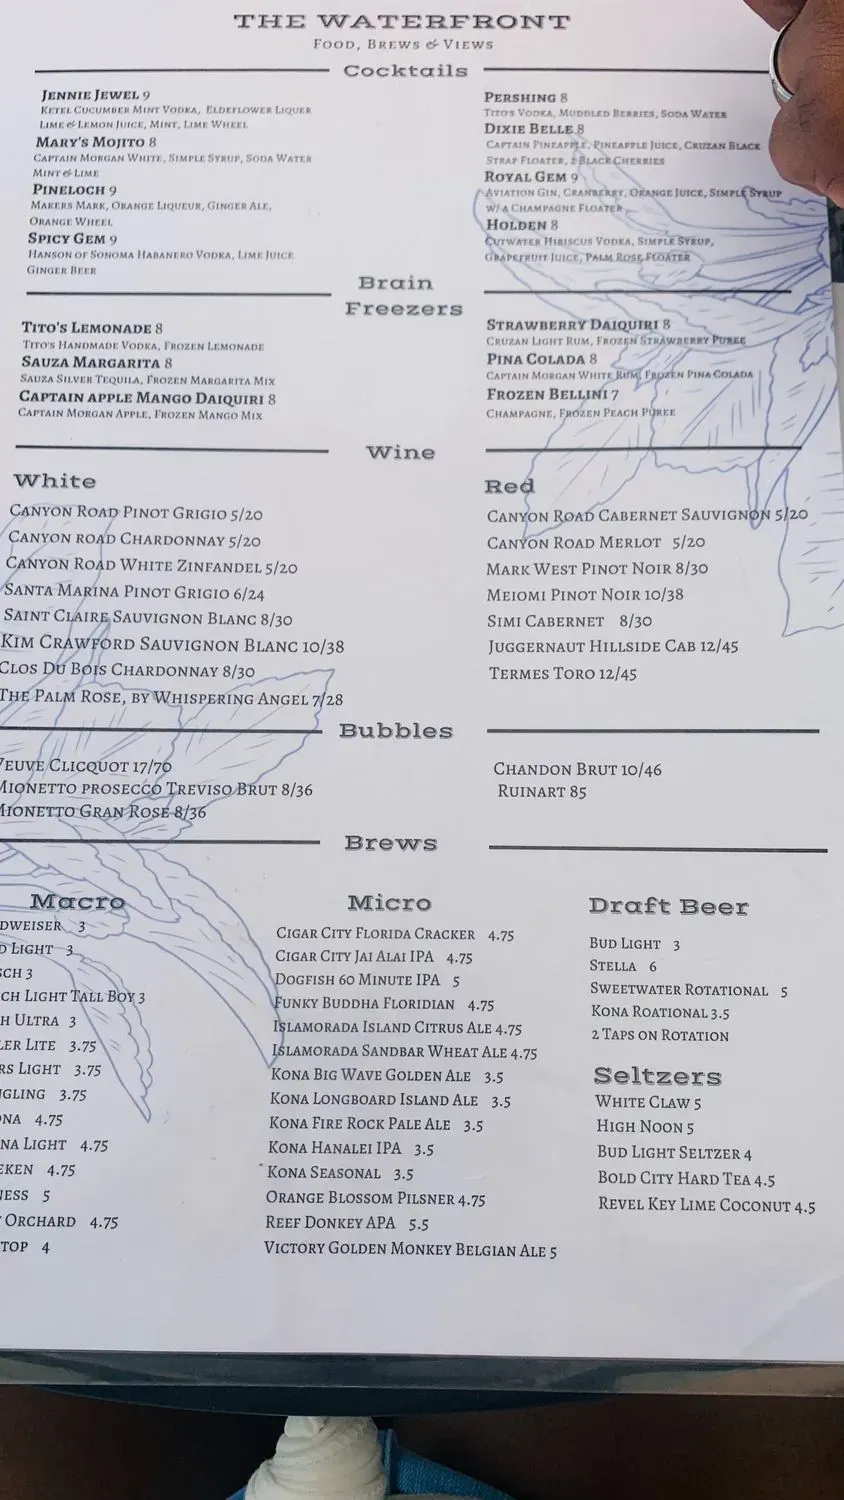 THE WATERFRONT
FOOD, BREWS & VIEWS
Cocktails
JENNIE JEWEL 9
KETEL CUCUMBER MINT VODKA, ELDEFLOWER LIQUER
LIME & LEMON JUICE, MINT, LIME WHEEL
MARY'S MOJITO 8
CAPTAIN MORGAN WHITE, SIMPLE SYRUP, SODA WATER
MINT & LIME
PINELOCH 9
MAKERS MARK, ORANGE LIQUEUR, GINGER ALE,
ORANGE WHEEL
SPICY GEM 9
HANSON OF SONOMA HABANERO VODKA, LIME JUICE
GINGER BEER
PERSHING 8
TITO'S VODKA, MUDDLED BERRIES, SODA WATER
DIXIE BELLE 8
CAPTAIN PINEAPPLE, PINEAPPLE JUICE, CRUZAN BLACK
STRAP FLOATER, 2 BLACK CHERRIES
ROYAL GEM 9
AVIATION GIN, CRANBERRY, ORANGE JUICE, SIMPLE SYRUP
W/ A CHAMPAGNE FLOATER
HOLDEN 8
CUTWATER HIBISCUS VODKA, SIMPLE SYRUP,
GRAPEFRUIT JUICE, PALM ROSE FLOATER
Brain
Freezers
TITO'S LEMONADE 8
TITO'S HANDMADE VODKA, FROZEN LEMONADE
SAUZA MARGARITA 8
SAUZA SILVER TEQUILA, FROZEN MARGARITA MIX
CAPTAIN APPLE MANGO DAIQUIRI 8
CAPTAIN MORGAN APPLE, FROZEN MANGO MIX
STRAWBERRY DAIQUIRI 8
CRUZAN LIGHT RUM, FROZEN STRAWBERRY PUREE
PINA COLADA 8
CAPTAIN MORGAN WHITE RUM, FROZEN PINA COLADA
FROZEN BELLINI 7
CHAMPAGNE, FROZEN PEACH PUREE
Wine
White
CANYON ROAD PINOT GRIGIO 5/20
CANYON ROAD CHARDONNAY 5/20
CANYON ROAD WHITE ZINFANDEL 5/20
SANTA MARINA PINOT GRIGIO 6/24
SAINT CLAIRE SAUVIGNON BLANC 8/30
KIM CRAWFORD SAUVIGNON BLANC 10/38
CLOS DU BOIS CHARDONNAY 8/30
THE PALM ROSE, BY WHISPERING ANGEL 7/28
Red
CANYON ROAD CABERNET SAUVIGNON 5/20
CANYON ROAD MERLOT 5/20
MARK WEST PINOT NOIR 8/30
MEIOMI PINOT NOIR 10/38
SIMI CABERNET 8/30
JUGGERNAUT HILLSIDE CAB 12/45
TERMES TORO 12/45
Bubbles
VEUVE CLICQUOT 17/70
MIONETTO PROSECCO TREVISO BRUT 8/36
MIONETTO GRAN ROSE 8/36
CHANDON BRUT 10/46
RUINART 85
Brews
Macro
DWEISER 3
D LIGHT 3
SCH 3
CH LIGHT TALL BOY 3
H ULTRA 3
LER LITE 3.75
RS LIGHT 3.75
NGLING 3.75
NA 4.75
NA LIGHT 4.75
EKEN 4.75
NESS 5
Y ORCHARD 4.75
TOP 4
Micro
CIGAR CITY FLORIDA CRACKER 4.75
CIGAR CITY JAI ALAI IPA 4.75
DOGFISH 60 MINUTE IPA 5
FUNKY BUDDHA FLORIDIAN 4.75
ISLAMORADA ISLAND CITRUS ALE 4.75
ISLAMORADA SANDBAR WHEAT ALE 4.75
KONA BIG WAVE GOLDEN ALE 3.5
KONA LONGBOARD ISLAND ALE 3.5
KONA FIRE ROCK PALE ALE 3.5
KONA HANALEI IPA 3.5
KONA SEASONAL 3.5
ORANGE BLOSSOM PILSNER 4.75
REEF DONKEY APA 5.5
VICTORY GOLDEN MONKEY BELGIAN ALE 5
Draft Beer
BUD LIGHT 3
STELLA 6
SWEETWATER ROTATIONAL 5
KONA ROATIONAL 3.5
2 TAPS ON ROTATION
Seltzers
WHITE CLAW 5
HIGH NOON 5
BUD LIGHT SELTZER 4
BOLD CITY HARD TEA 4.5
REVEL KEY LIME COCONUT 4.5